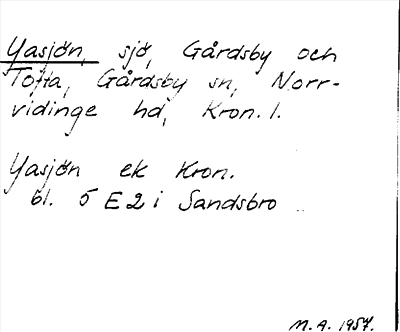 Yasjön, sjö, Gårdsby och
Tofta, Gårdsby sn, Norr-
vidinge hd, Kron. l.
Yasjön ek Kron.
bl. 5 E 2 i Sandsbro
M.A. 1957.